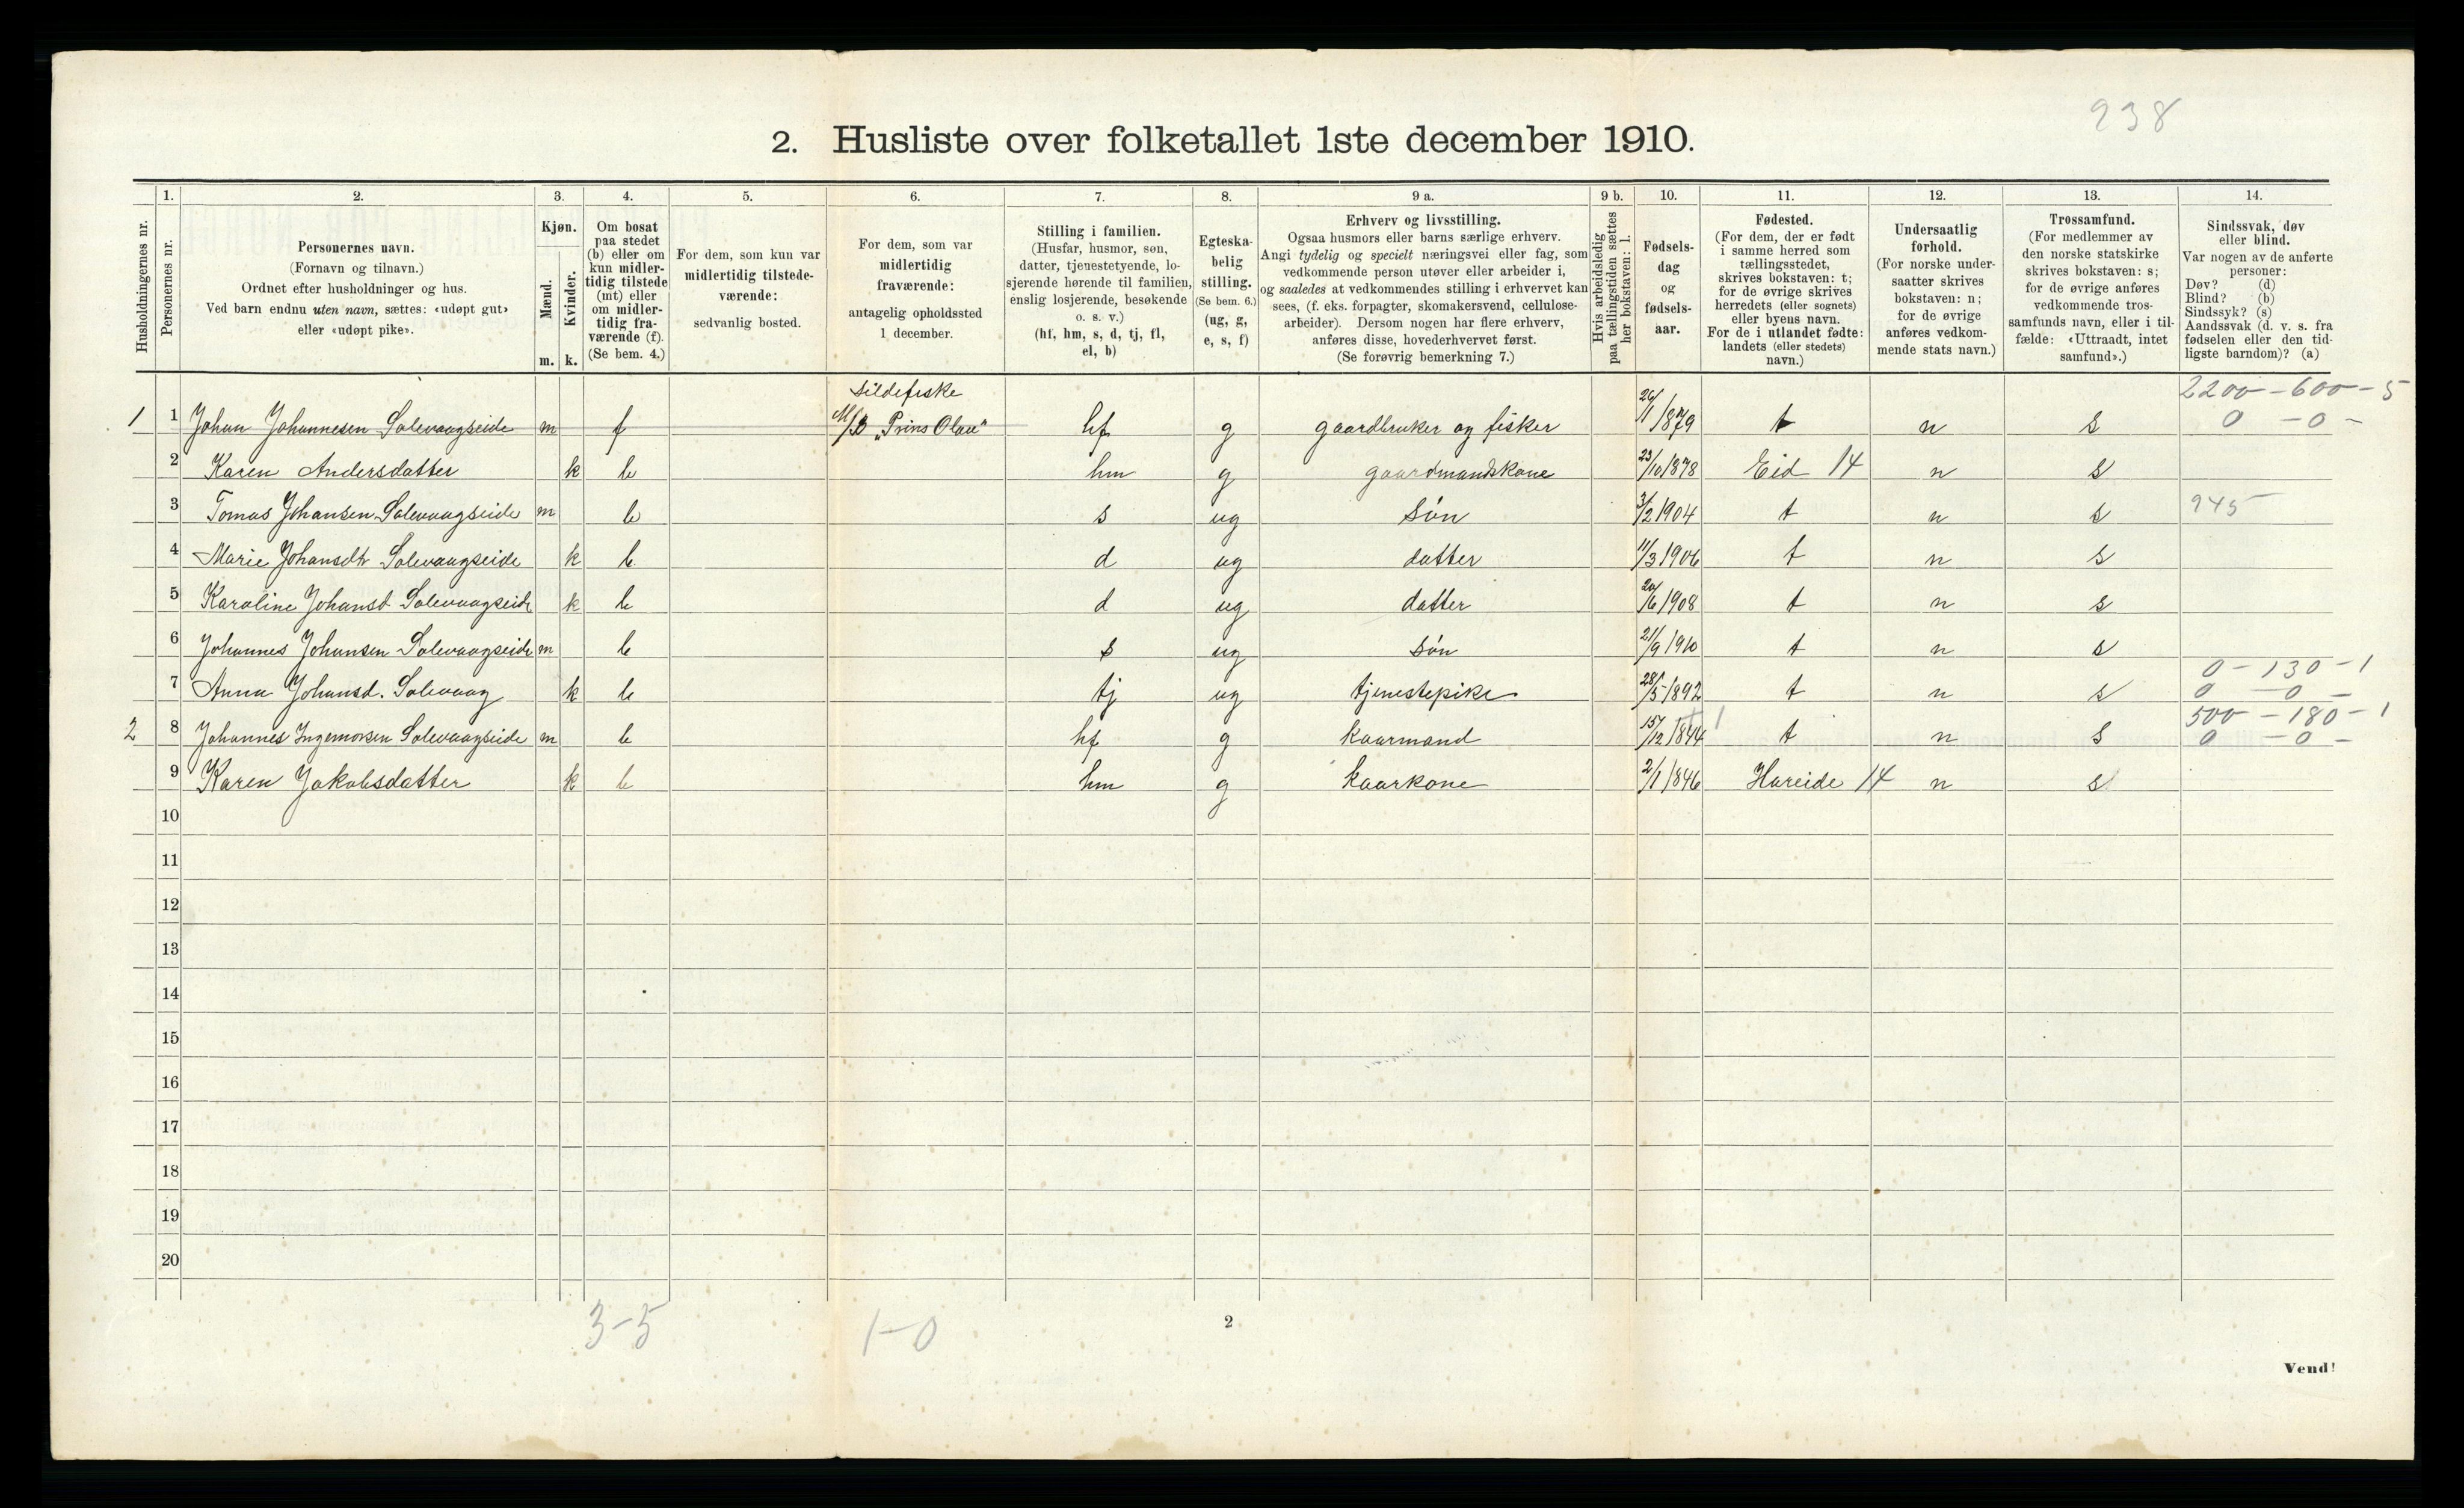 238
2. Husliste over folketallet 1ste december 1910.
Husholdningernes nr.
1.
Personernes nr.
2.
Personernes navn.
(Fornavn og tilnavn.)
Ordnet efter husholdninger og hus.
Ved barn endnu uten navn, sættes: «udøpt gut»
eller «udøpt pike».
3.
Kjøn.
Mænd.
Kvinder.
m. k.
4.
Om bosat
paa stedet
(b) eller om
kun midler-
tidig tilstede
(mt) eller
om midler-
tidig fra-
værende (f).
(Se bem. 4.)
5.
For dem, som kun var
midlertidig tilstede-
værende:
sedvanlig bosted.
6.
For dem, som var
midlertidig
fraværende:
antagelig opholdssted
1 december.
7.
Stilling i familien.
(Husfar, husmor, søn,
datter, tjenestetyende, lo-
sjerende hørende til familien,
enslig losjerende, besøkende
o. s. v.)
(hf, hm, s, d, tj, fl,
el, b)
8.
Egteska-
belig
stilling.
(Se bem. 6.)
(ug, g,
e, s, f)
9 a.
Erhverv og livsstilling.
Ogsaa husmors eller barns særlige erhverv.
Angi tydelig og specielt næringsvei eller fag, som
vedkommende person utøver eller arbeider i,
og saaledes at vedkommendes stilling i erhvervet kan
sees, (f. eks. forpagter, skomakersvend, cellulose-
arbeider). Dersom nogen har flere erhverv,
anføres disse, hovederhvervet først.
(Se forøvrig bemerkning 7.)
9 b.
Hvis arbeidsledig
paa tællingstiden sættes
her bokstaven: l.
10.
Fødsels-
dag
og
fødsels-
aar.
11.
Fødested.
(For dem, der er født
i samme herred som
tællingsstedet,
skrives bokstaven: t;
for de øvrige skrives
herredets (eller sognets)
eller byens navn.
For de i utlandet fødte:
landets (eller stedets)
navn.)
12.
Undersaatlig
forhold.
(For norske under-
saatter skrives
bokstaven: n;
for de øvrige
anføres vedkom-
mende stats navn.)
13.
Trossamfund.
(For medlemmer av
den norske statskirke
skrives bokstaven: s;
for de øvrige anføres
vedkommende tros-
samfunds navn, eller i til-
fælde: «Uttraadt, intet
samfund».)
14.
Sindssvak, døv
eller blind.
Var nogen av de anførte
personer:
Døv? (d)
Blind? (b)
Sindssyk? (s)
Aandssvak (d. v. s. fra
fødselen eller den tid-
ligste barndom)? (a)
Sildefiske 2200-600-5
1 1 Johan Johannesen Solevaagseide m f M/B „Prins Olav" hf g gaardbruker og fisker 26/1 1879 t n s 0 - 0 -
2 Karen Andersdatter k b hm g gaardmandskone 23/10 1878 Eid 14 n s
3 Tomas Johansen Solevaagseide m b s ug søn 3/2 1904 t n s 945
4 Marie Johansdtr Solevaagseide k b d ug datter 11/3 1906 t n s
5 Karoline Johansd Solevaagseide k b d ug datter 20/6 1908 t n s
6 Johannes Johansen Solevaagseide m b s ug søn 21/9 1910 t n s
0 - 130 - 1
7 Anna Johansd. Solevaag k b tj ug tjenestepike 28/5 1892 t n s 0 - 0 -
500 - 180 - 1
2 8 Johannes Ingemorsen Solevaagseide m b hf g kaarmand 15/12 1844 t n s 0 - 0 -
9 Karen Jakobsdatter k b hm g kaarkone 2/1 1846 Hareide 14 n s
10
11
12
13
14
15
16
17
18
19
20
3-5 1-0
2
Vend!